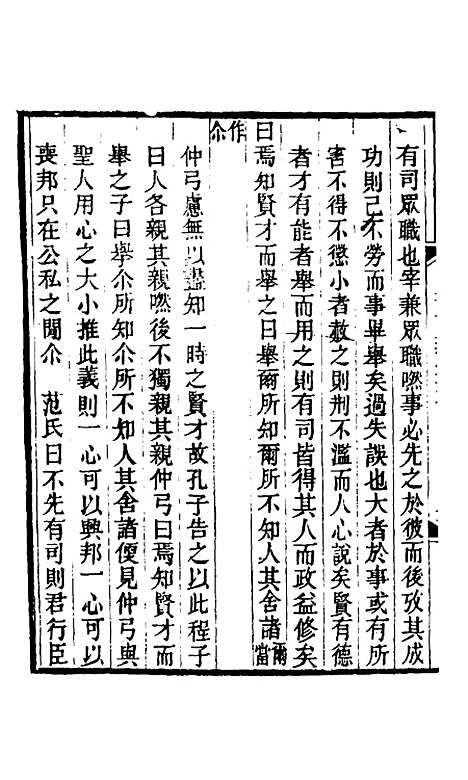 有司眾職也宰兼眾職㸐事必先之於彼而後攷其成
功則己不勞而事畢舉矣過失誤也大者於事或有所
害不得不懲小者赦之則刑不濫而人心說矣賢有德
者才有能者舉而用之則有司皆得其人而政益修矣
曰焉知賢才而舉之曰舉爾所知爾所不知人其舍諸爾當
作尒
仲弓慮無以盡知一時之賢才故孔子告之以此程子
曰人各親其親㸐後不獨親其親仲弓曰焉知賢才而
舉之子曰舉尒所知尒所不知人其舍諸便見仲弓與
聖人用心之大小推此義則一心可以興邦一心可以
喪邦只在公私之閒尒　范氏曰不先有司則君行臣